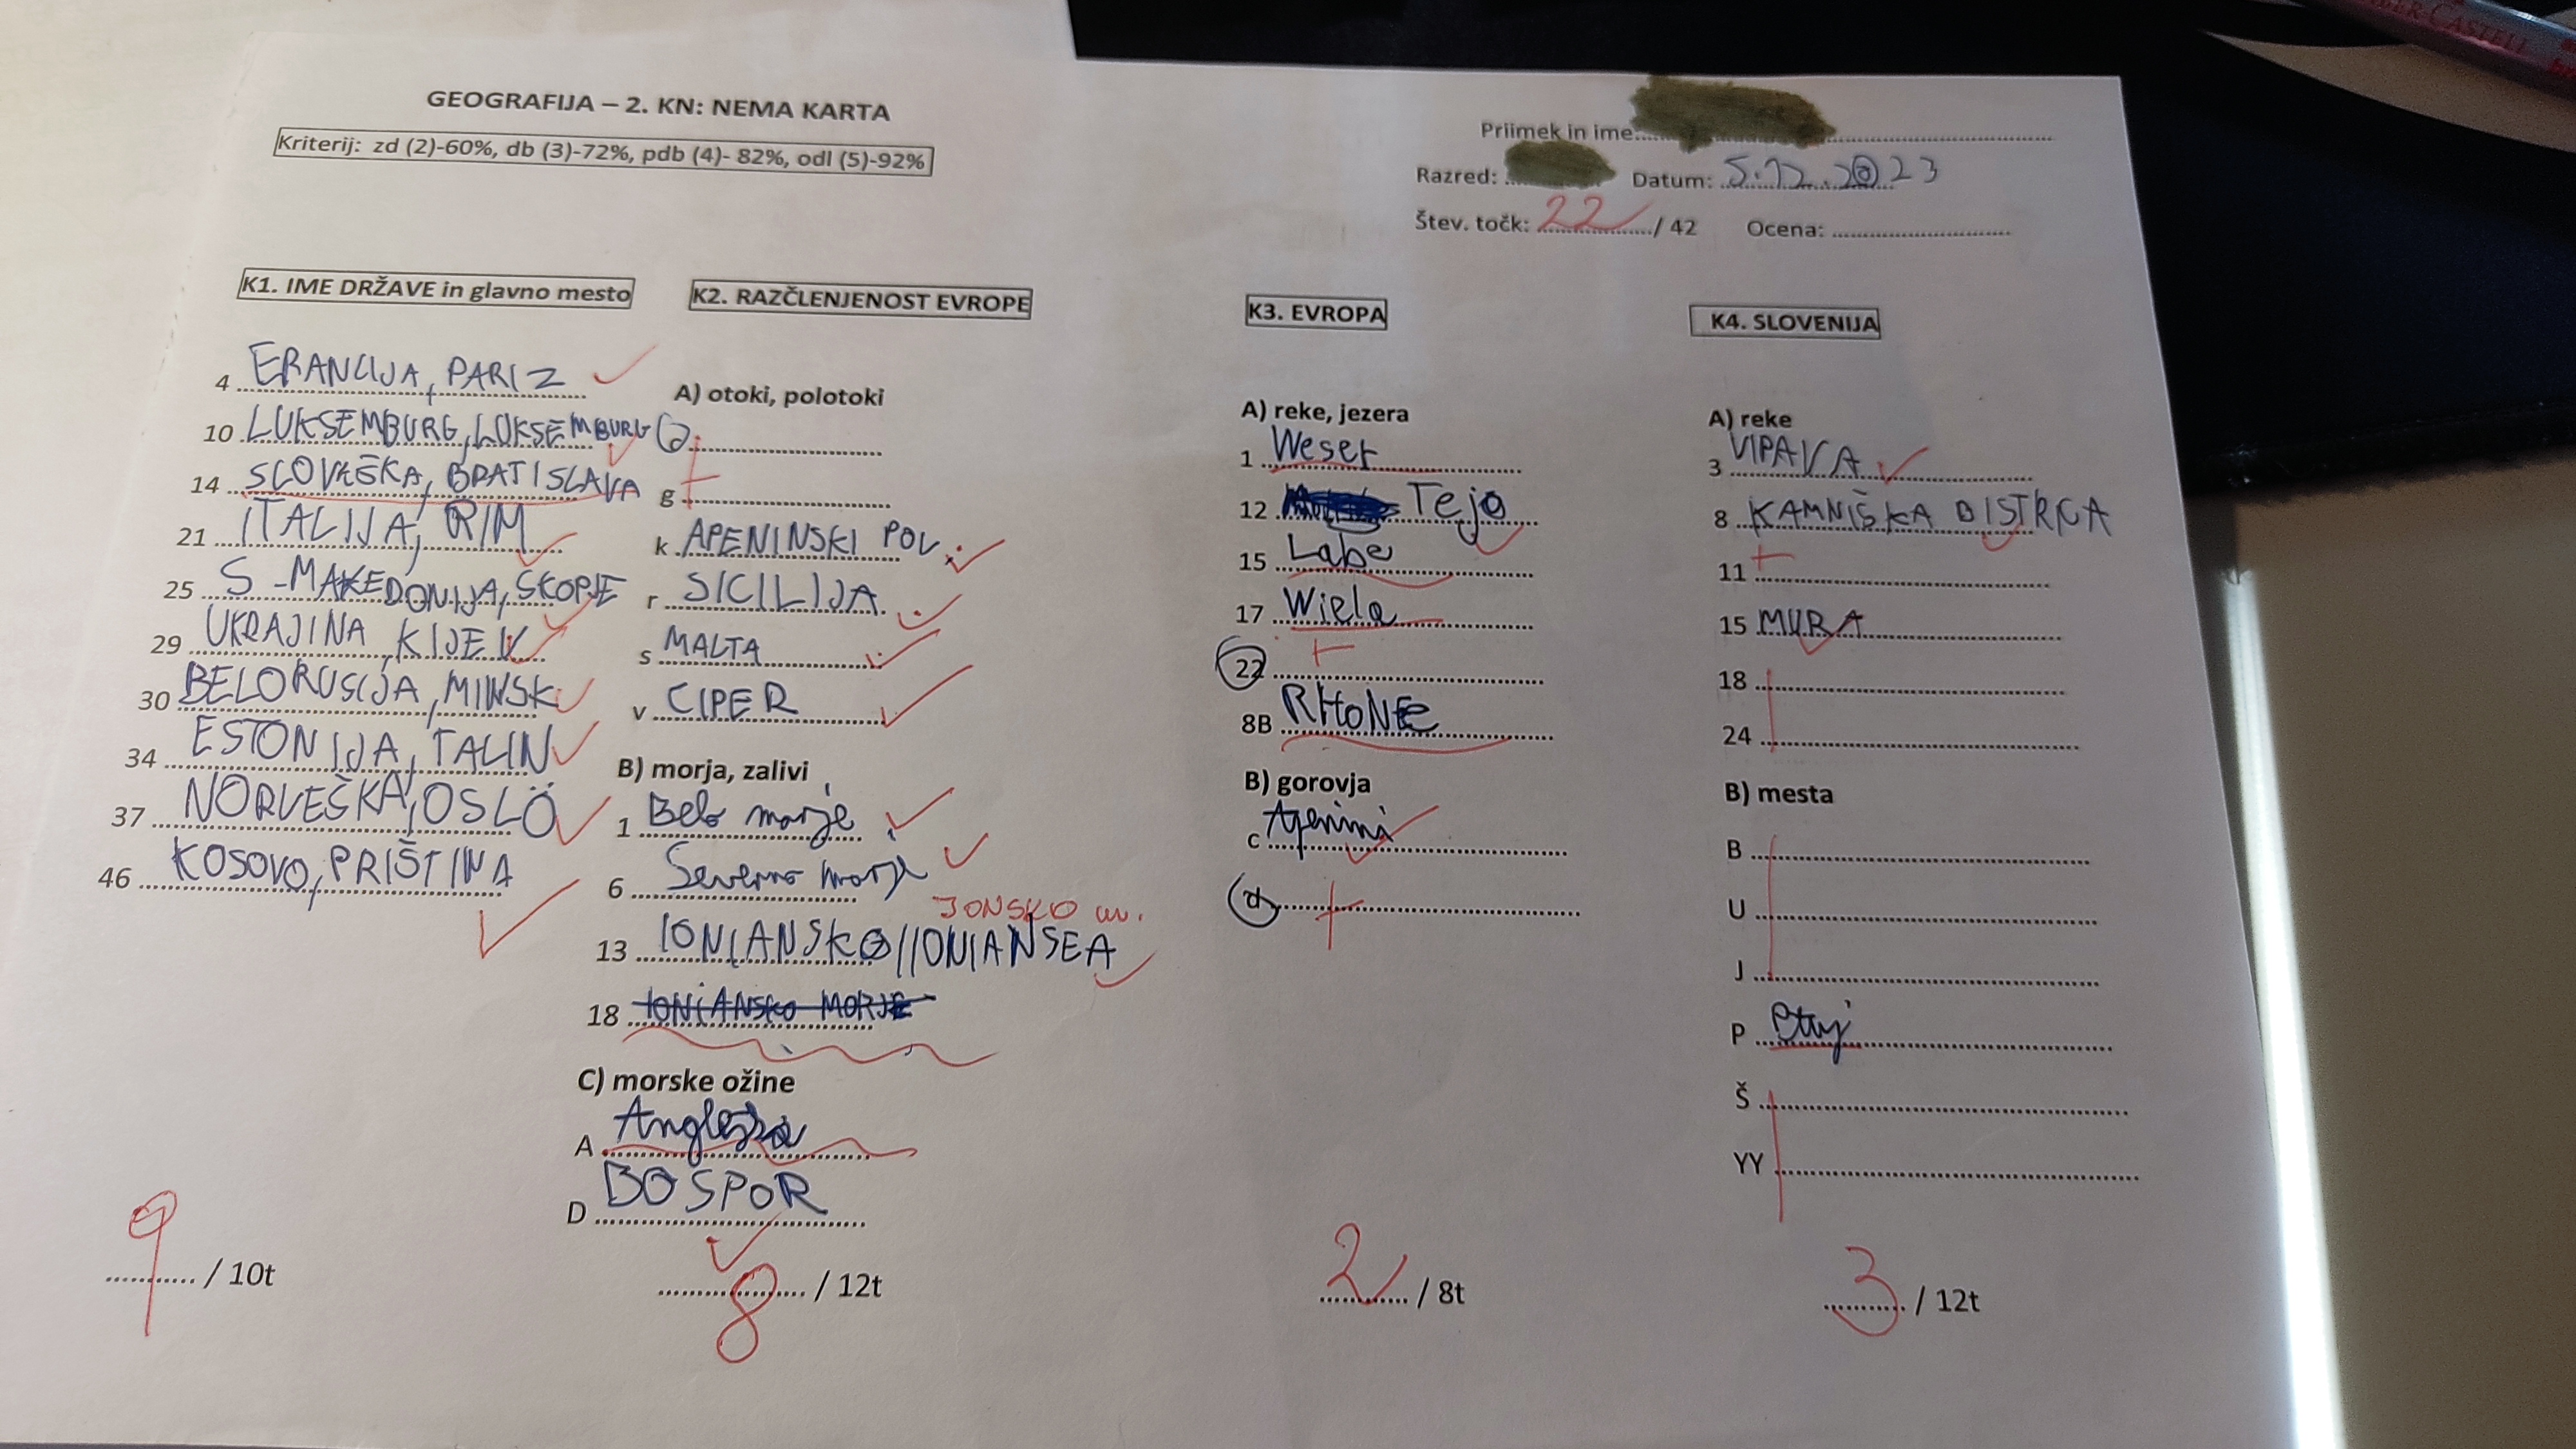 GEOGRAFIJA – 2. KN: NEMA KARTA
Kriterij: zd (2)-60%, db (3)-72%, pdb (4)- 82%, odl (5)-92%
Priimek in ime
Razred: Datum: 5.12.2023
Štev. točk: 22 / 42 Ocena:
K1. IME DRŽAVE in glavno mesto
4 FRANCIJA, PARIZ
10 LUKSEMBURG, LUKSEMBURG
14 SLOVAŠKA, BRATISLAVA
21 ITALIJA, RIM
25 S-MAKEDONIJA, SKOPJE
29 UKRAJINA, KIJEV
30 BELORUSIJA, MINSK
34 ESTONIJA, TALIN
37 NORVEŠKA, OSLO
46 KOSOVO, PRIŠTINA
9 / 10t
K2. RAZČLENJENOST EVROPE
A) otoki, polotoki
a
g
k APENINSKI POL.
r SICILIJA
s MALTA
v CIPER
B) morja, zalivi
1 Belo morje
6 Severno morje
JONSKO m.
13 IONIANSKO//IONIAN SEA
18 IONIANSKO MORJE
C) morske ožine
A Angleška
D BOSPOR
8 / 12t
K3. EVROPA
A) reke, jezera
1 Weser
12 Tejo
15 Labe
17 Wiela
22
8B RHONE
B) gorovja
c Apenini
d
2 / 8t
K4. SLOVENIJA
A) reke
3 VIPAVA
8 KAMNIŠKA BISTRCA
11
15 MURA
18
24
B) mesta
B
U
J
P Ptuj
Š
YY
3 / 12t